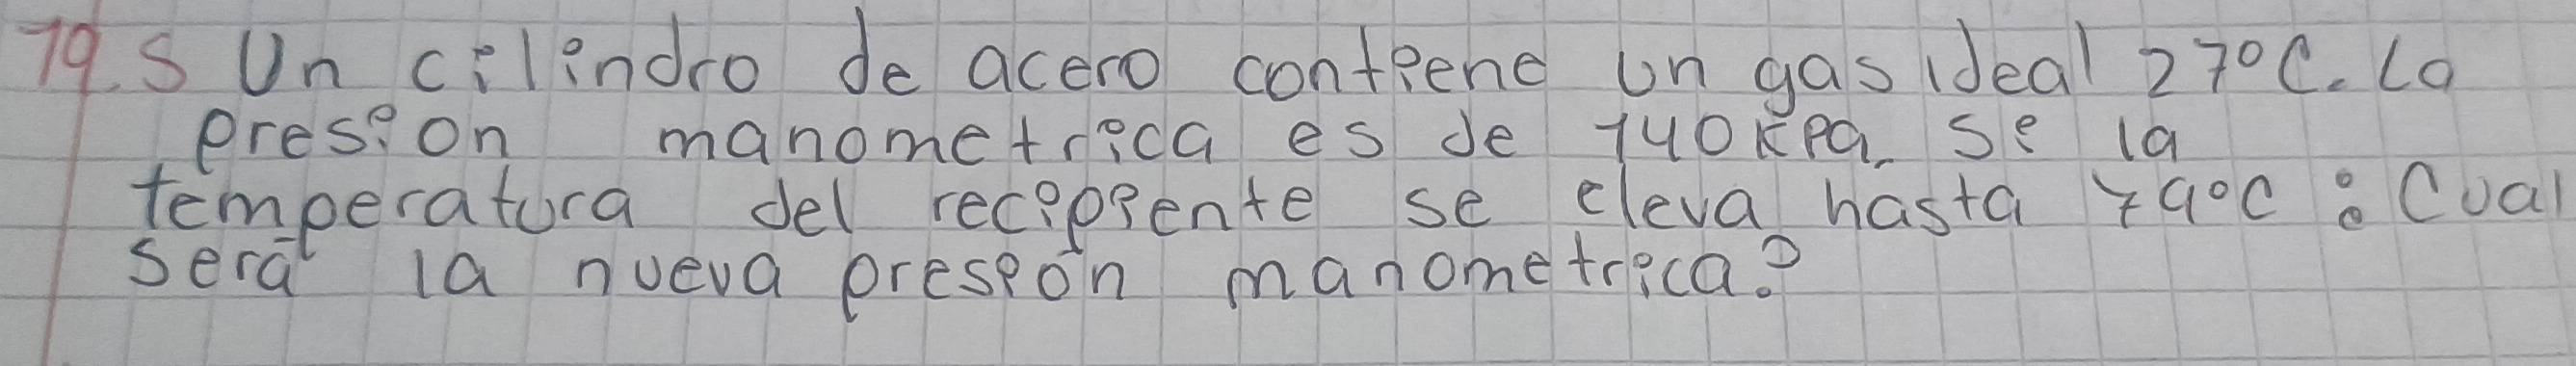 19.5 Un cilindro de acero contiene un gas ideal 27°C. La
presion manometrica es de 140kpa. se la
temperatura del recipiente se eleva hasta 79°C : Cual
será la nueva presión manometrica?